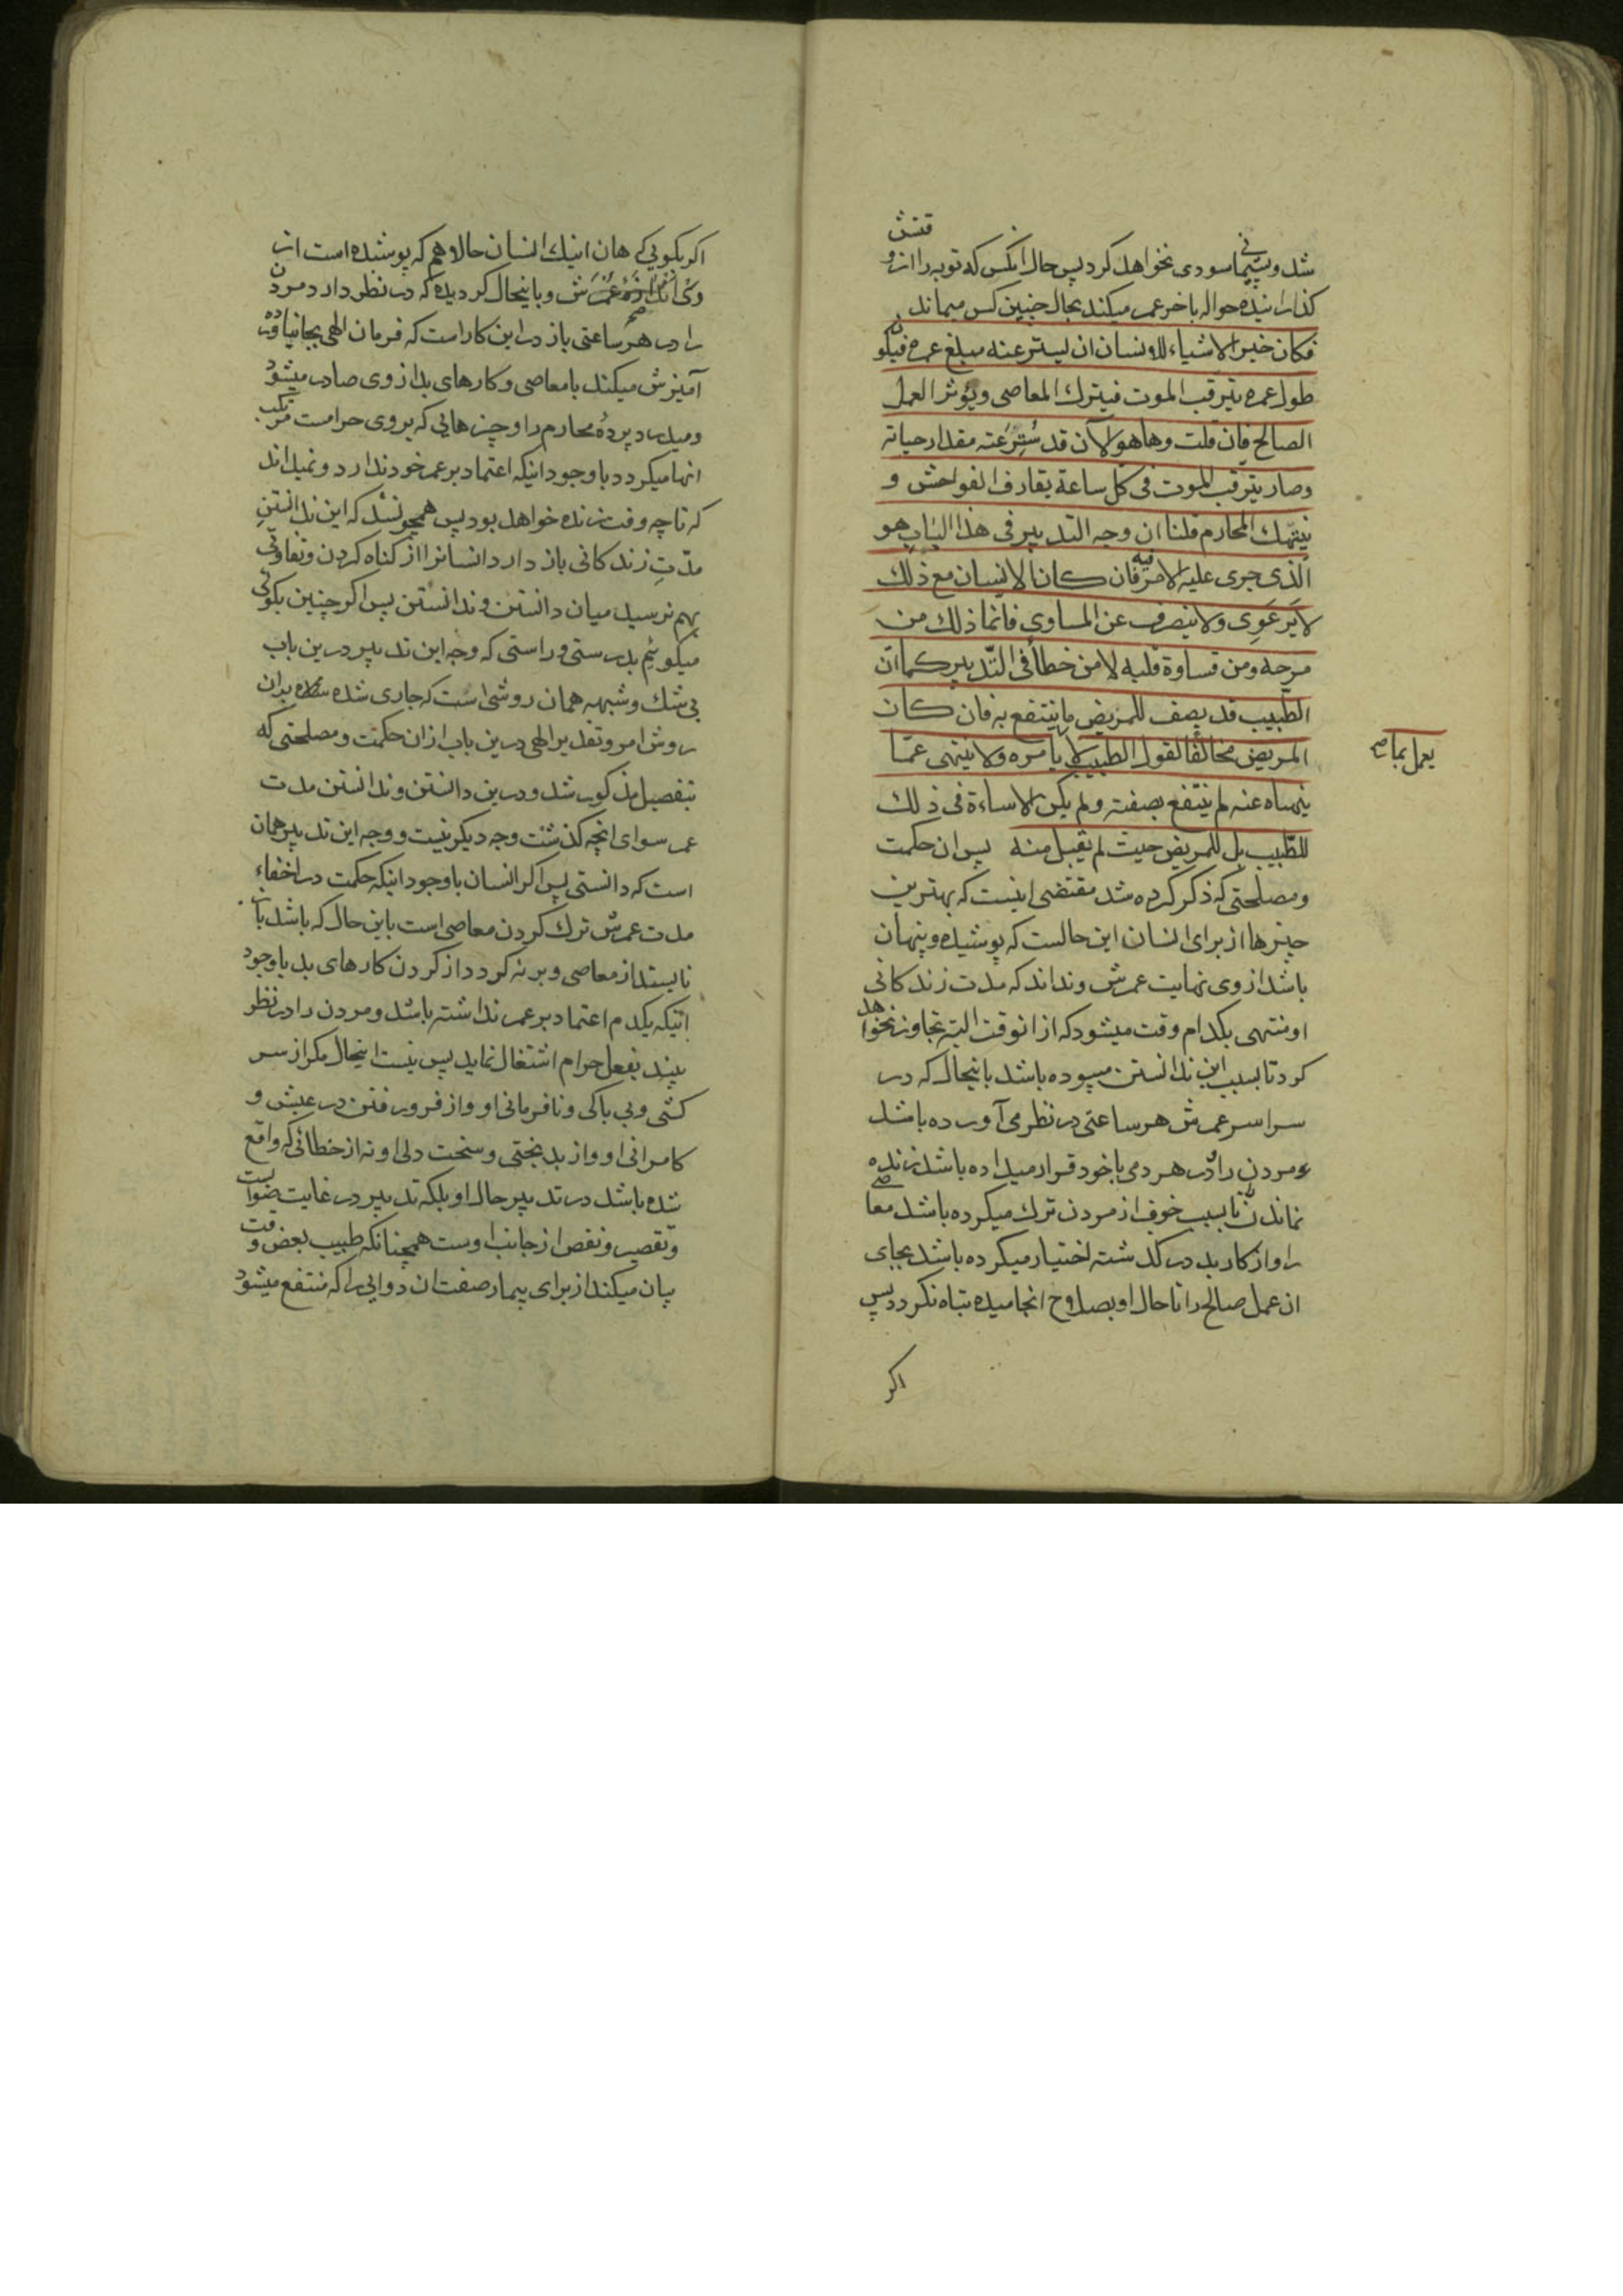 شد و پشیمانی سودی نخواهد کرد پس حال انکس که توبه را از وقتش
کذرانیده حواله باخر عمر میکند بحال چنین کس میماند
فکان خیر الاشیاء للانسان ان یستر عنه مبلغ عمره فیکون
طول عمره یترقب الموت فیترك المعاصی و یؤثر العمل
الصالح فان قلت وها هو الآن قد سُتِرَ عنه مقدار حیاته
وصار یترقب الموت فی کل ساعة یقارف الفواحش و
ینتهك المحارم قلنا ان وجه التدبیر فی هذا الباب هو
الّذی جری علیه الامر فیه فان کان الانسان مع ذلك
لا یَرعَوِی ولا ینصرف عن المساوی فانما ذلك من
مرحه ومن قساوة قلبه لا من خطأ فی التّدبیر کما انّ
الطّبیب قد یصف للمریض ما ینتفع به فان کان
المریض مخالفًا لقول الطبیب لا یعمل بما یامره ولا ینتهی عمّا
ینهاه عنه لم ینتفع بصفته ولم یکن الاساءة فی ذلك
للطّبیب بل للمریض حیث لم یقبل منه پس ان حکمت
ومصلحتی که ذکر کرده شد مقتضی اینست که بهترین
چیزها از برای انسان این حالست که پوشیده و پنهان
باشد از وی نهایت عمرش ونداند که مدت زندکانی
او منتهی بکدام وقت میشود که از انوقت البته تجاوز نخواهد
کرد تا بسبب این ندانستن میبوده باشد باینحال که در
سراسر عمرش هر ساعتی در نظر می آورده باشد
مردن را در هر دمی با خود قرار میداده باشد زنده
نماندن تا بسبب خوف از مردن ترك میکرده باشد معاصی
را و از کار بد در کذشته اختیار میکرده باشد بجای
ان عمل صالح را تا حال او بصلاح انجامیده تباه نکردد پس
اکر
یعمل بما صح
اکر بکویی که هان اینك انسان حالا هم که پوشیده است از
وی اندازهٔ عمرش و باینحال کردیده که در نظر دارد مردن
را در هر ساعتی باز در این کار است که فرمان الهی بجا نیاورده
آمیزش میکند با معاصی و کارهای بد از وی صادر میشود
ومیدرد پردهٔ محارم را و چیزهایی که بر وی حرامست مرتکب
انها میکردد با وجود اینکه اعتماد بر عمر خود ندارد و نمیداند
که تا چه وقت زنده خواهد بود پس همچو نشد که این ندانستنِ
مدّتِ زندکانی باز دارد انسانرا از کناه کردن و تفاوتی
بهم نرسید میان دانستن و ندانستن پس اکر چنین بکوئی
میکوئیم بدرستی و راستی که وجه این تدبیر درین باب
بی شك و شبهه همان روشی است که جاری شده بران
روش امر و تقدیر الهی درین باب از ان حکمت و مصلحتی که
بتفصیل مذکور شد و درین دانستن و ندانستن مدت
عمر سوای انچه کذشت وجه دیکر نیست و وجه این تدبیر همان
است که دانستی پس اکر انسان با وجود اینکه حکمت در اخفاء
مدت عمرش ترك کردن معاصی است باین حال که باشد باز
نایستد از معاصی و برنه کردد از کردن کارهای بد با وجود
اینکه یکدم اعتماد بر عمر نداشته باشد و مردن را در نظر
بیند بفعل حرام اشتغال نماید پس نیست اینحال مکر از سر
کشی و بی باکی و نافرمانی او و از فرو رفتن در عیش و
کامرانی او و از بدبختی و سخت دلی او نه از خطائی که واقع
شده باشد در تدبیر حال او بلکه تدبیر در غایت صوابست
و تقصیر و نقص از جانب اوست همچنانکه طبیب بعض وقت
بیان میکند از برای بیمار صفت ان دوایی را که منتفع میشود